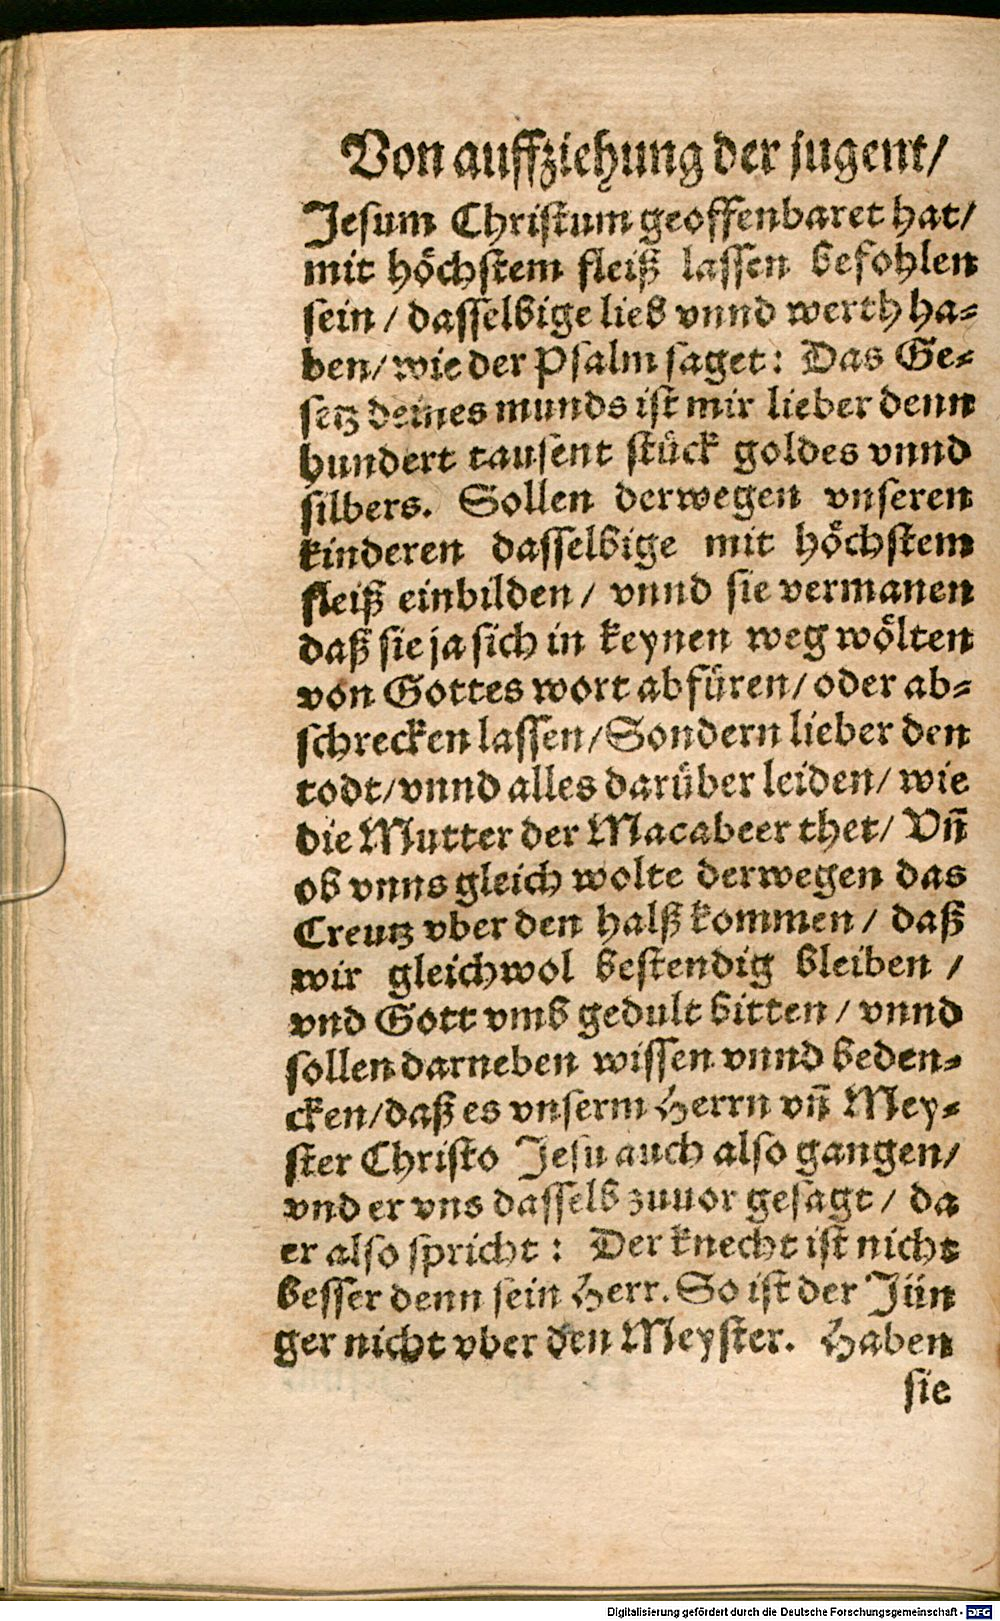 Von auffziehung der jugent/
Jesum Christum geoffenbaret hat/
mit höchstem fleiß lassen befohlen
sein / dasselbige lieb vnnd werth ha-
ben/ wie der Psalm saget: Das Ge-
setz deines munds ist mir lieber denn
hundert tausent stück goldes vnnd
silbers. Sollen derwegen vnseren
kinderen dasselbige mit höchstem
fleiß einbilden / vnnd sie vermanen
daß sie ja sich in keynen weg wölten
von Gottes wort abfüren/ oder ab-
schrecken lassen/ Sondern lieber den
todt/ vnnd alles darüber leiden/ wie
die Mutter der Macabeer thet/ Vñ
ob vnns gleich wolte derwegen das
Creutz vber den halß kommen / daß
wir gleichwol bestendig bleiben /
vnd Gott vmb gedult bitten / vnnd
sollen darneben wissen vnnd beden-
cken/ daß es vnserm Herrn vñ Mey-
ster Christo Jesu auch also gangen/
vnd er vns dasselb zuuor gesagt / da
er also spricht : Der knecht ist nicht
besser denn sein Herr. So ist der Jün
ger nicht vber den Meyster. Haben
sie
Digitalisierung gefördert durch die Deutsche Forschungsgemeinschaft - DFG